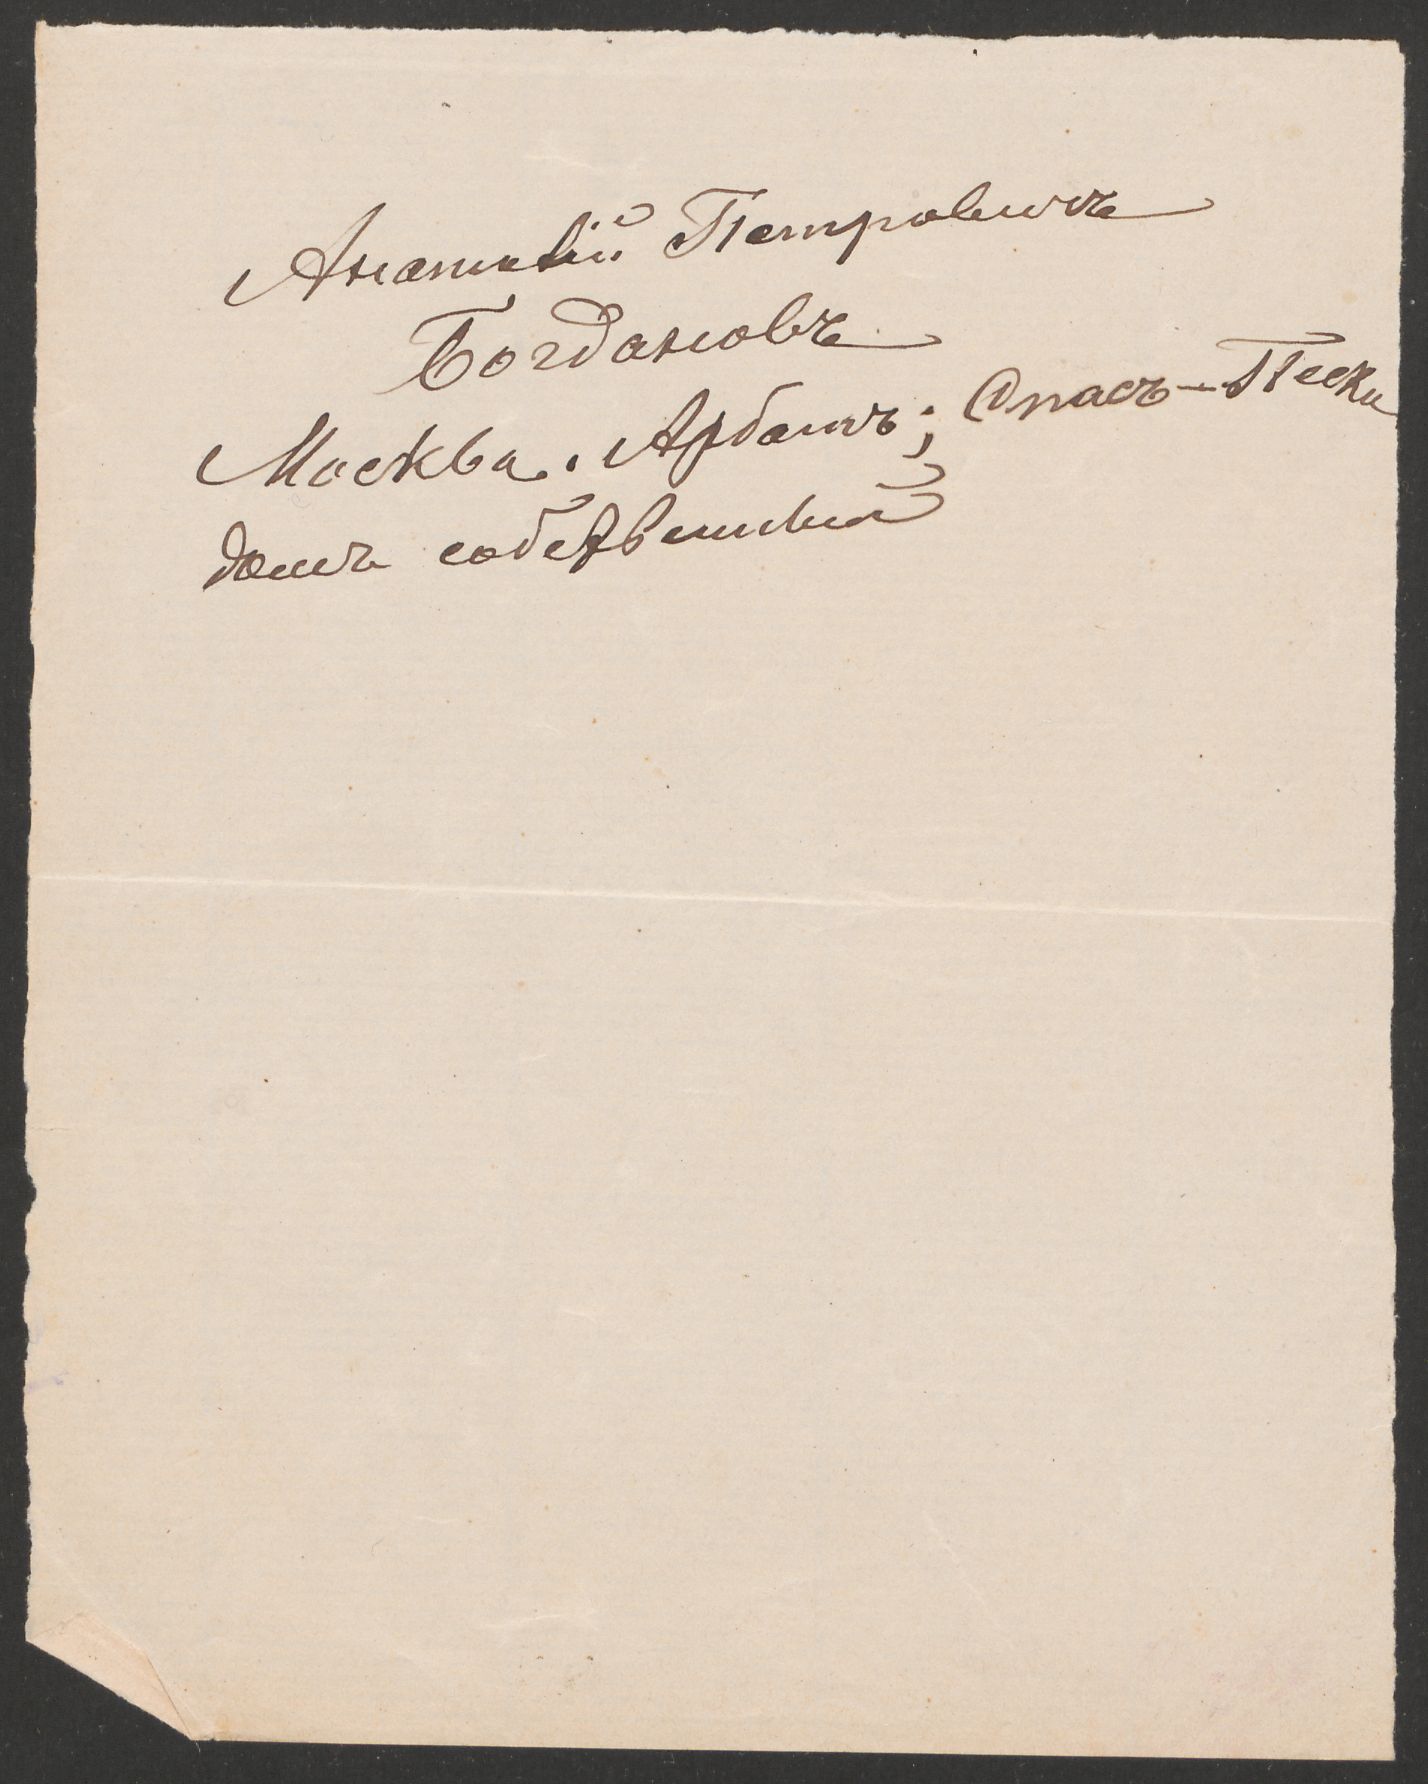 Анатолій Петровичъ
Богдановъ
Москва. Арбатъ; Спасъ-Пески
домъ собственный